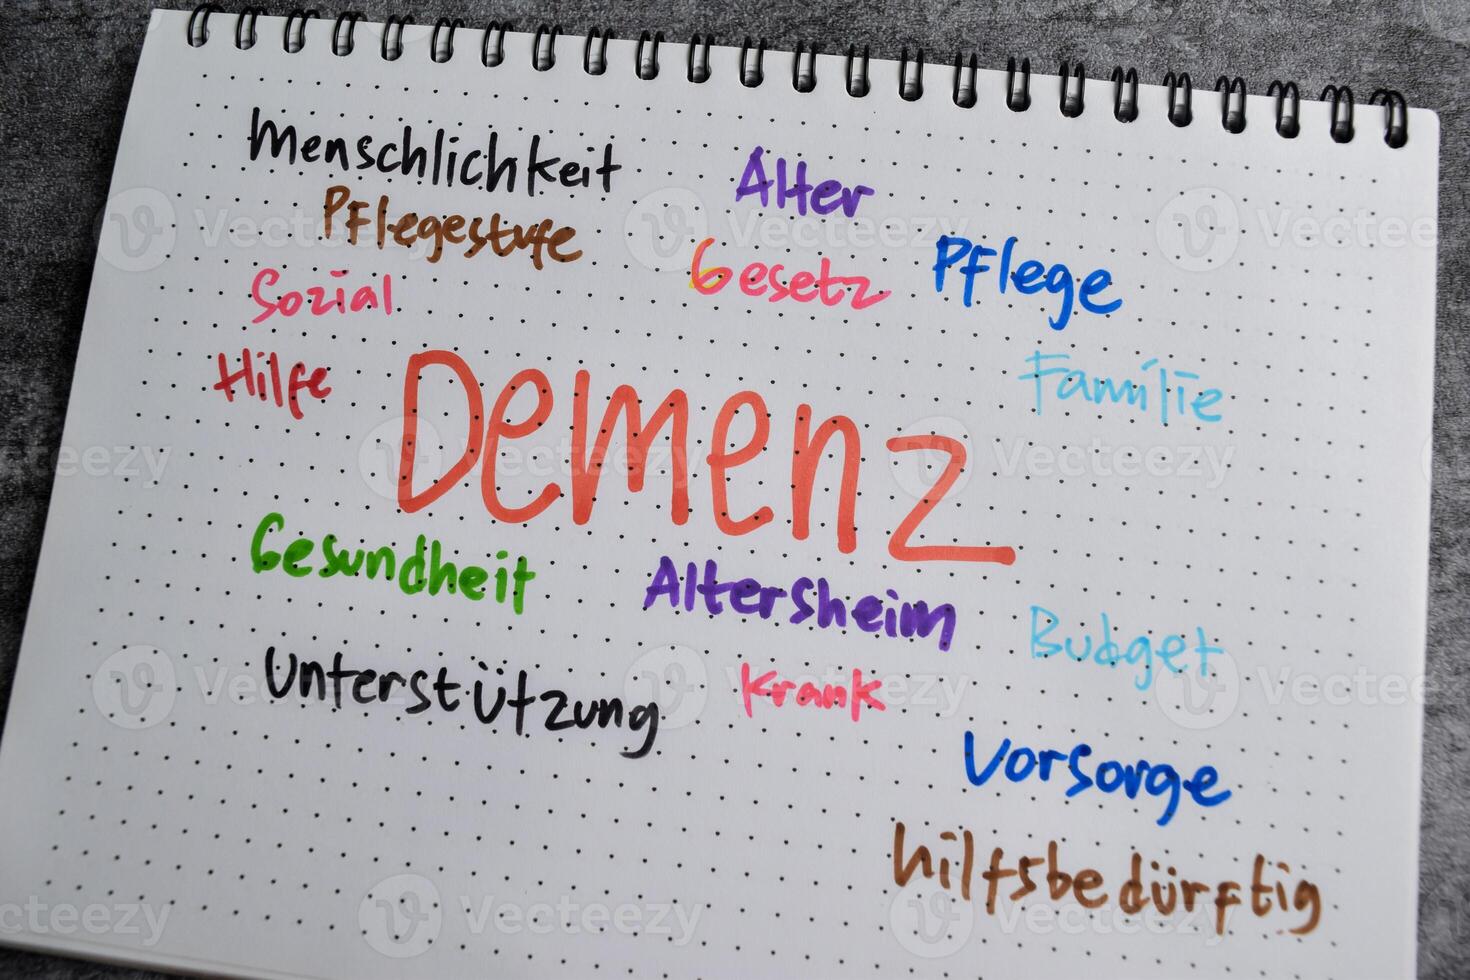 Menschlichkeit
Alter
Pflegestufe
Gesetz
Pflege
Sozial
Hilfe
Familie
Demenz
Gesundheit
Altersheim
Budget
Unterstützung
Krank
Vorsorge
hilfsbedürftig
Vecteezy
Vecteezy
Vecteezy
Vecteezy
Vecteezy
Vecteezy
Vecteezy
Vecteezy
Vecteezy
Vecteezy
Vecteezy
Vecteezy